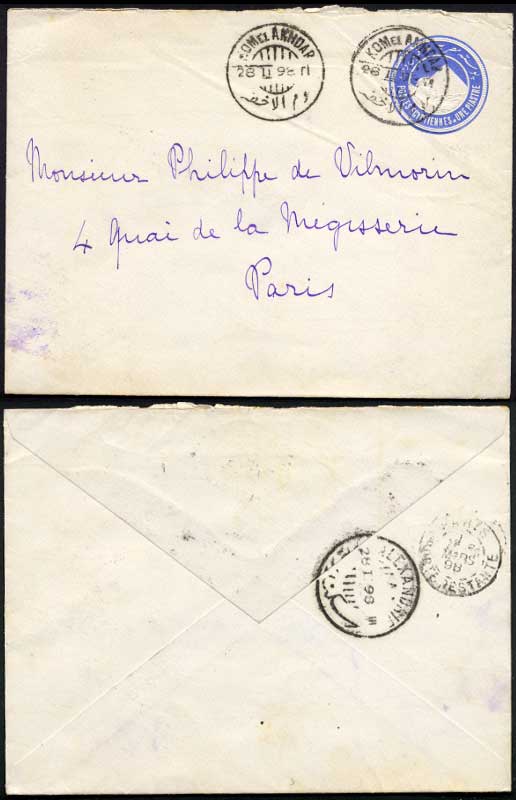 KOM EL AKHDAR
28 II 98
كوم الاخضر
KOM EL AKHDAR
28 II
POSTES EGYPTIENNES . UNE PIASTRE
Monsieur Philippe de Vilmorin
4 Quai de la Mégisserie
Paris
ALEXANDRIE
28 II 98 VI
98
POSTE RESTANTE